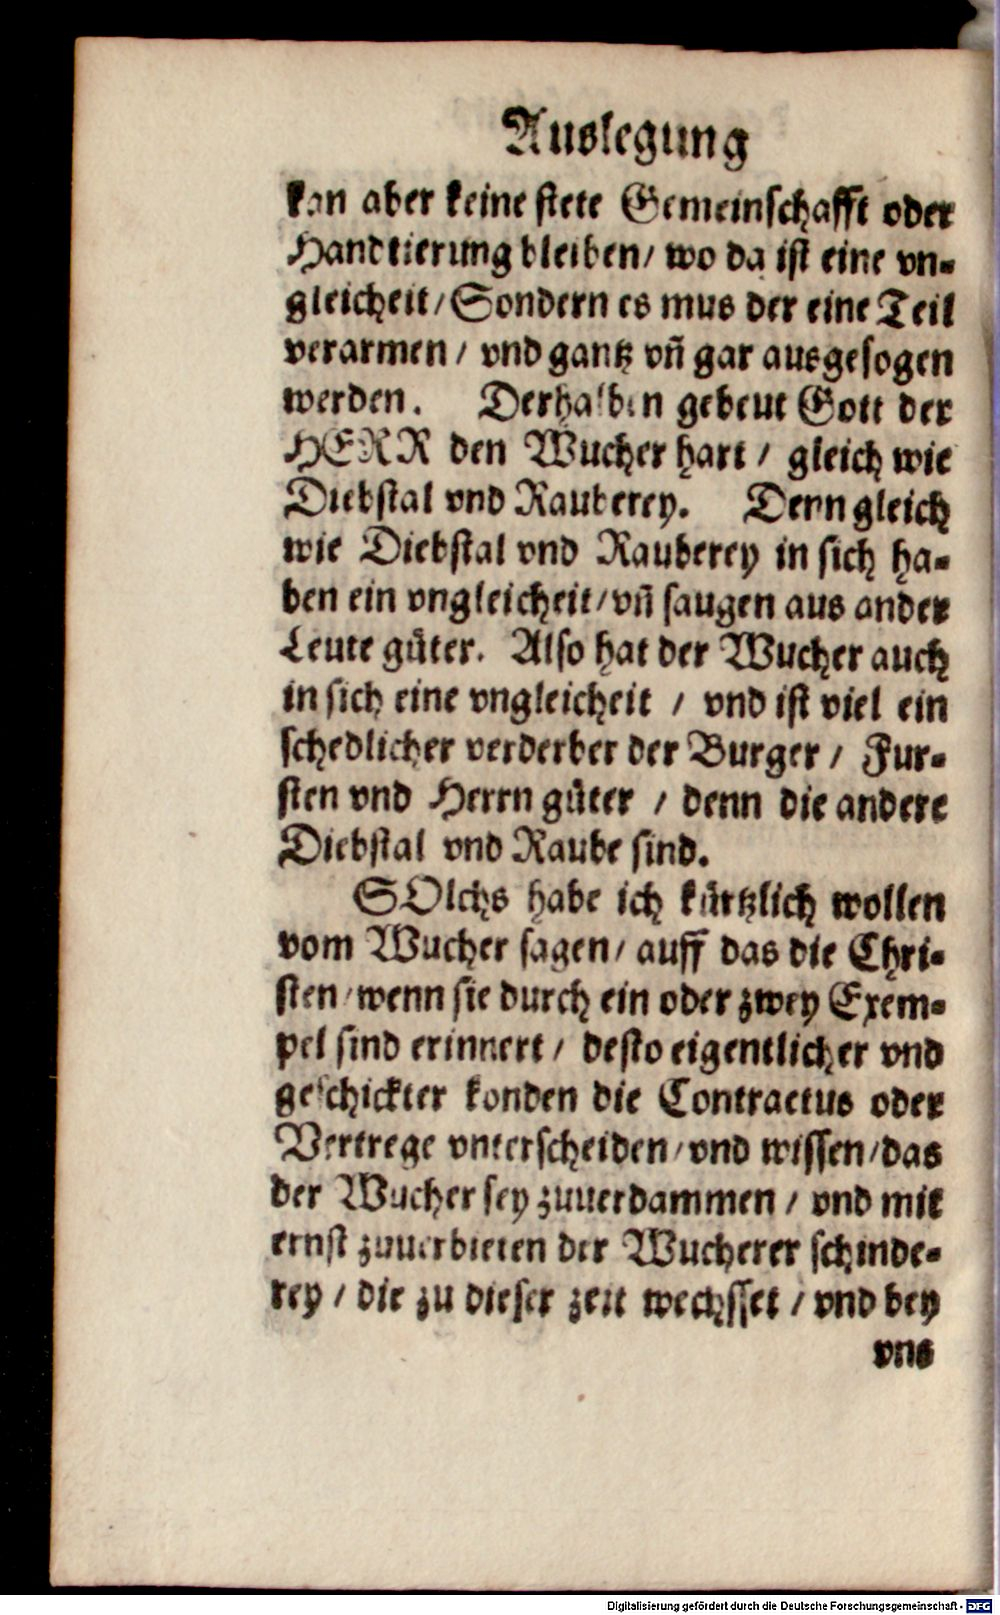 Auslegung
kan aber keine stete Gemeinschafft oder
Handtierung bleiben/ wo da ist eine vn-
gleicheit/ Sondern es mus der eine Teil
verarmen / vnd gantz vñ gar ausgesogen
werden. Derhalben gebeut Gott der
HERR den Wucher hart / gleich wie
Diebstal vnd Rauberey. Denn gleich
wie Diebstal vnd Rauberey in sich ha-
ben ein vngleicheit/ vñ saugen aus ander
Leute güter. Also hat der Wucher auch
in sich eine vngleicheit / vnd ist viel ein
schedlicher verderber der Burger / Fur-
sten vnd Herrn güter / denn die andere
Diebstal vnd Raube sind.
SOlchs habe ich kürtzlich wollen
vom Wucher sagen/ auff das die Chri-
sten/ wenn sie durch ein oder zwey Exem-
pel sind erinnert / desto eigentlicher vnd
geschickter konden die Contractus oder
Vertrege vnterscheiden/ vnd wissen/ das
der Wucher sey zuuerdammen / vnd mit
ernst zuuerbieten der Wucherer schinde-
rey / die zu dieser zeit wechsset / vnd bey
vns
Digitalisierung gefördert durch die Deutsche Forschungsgemeinschaft - DFG